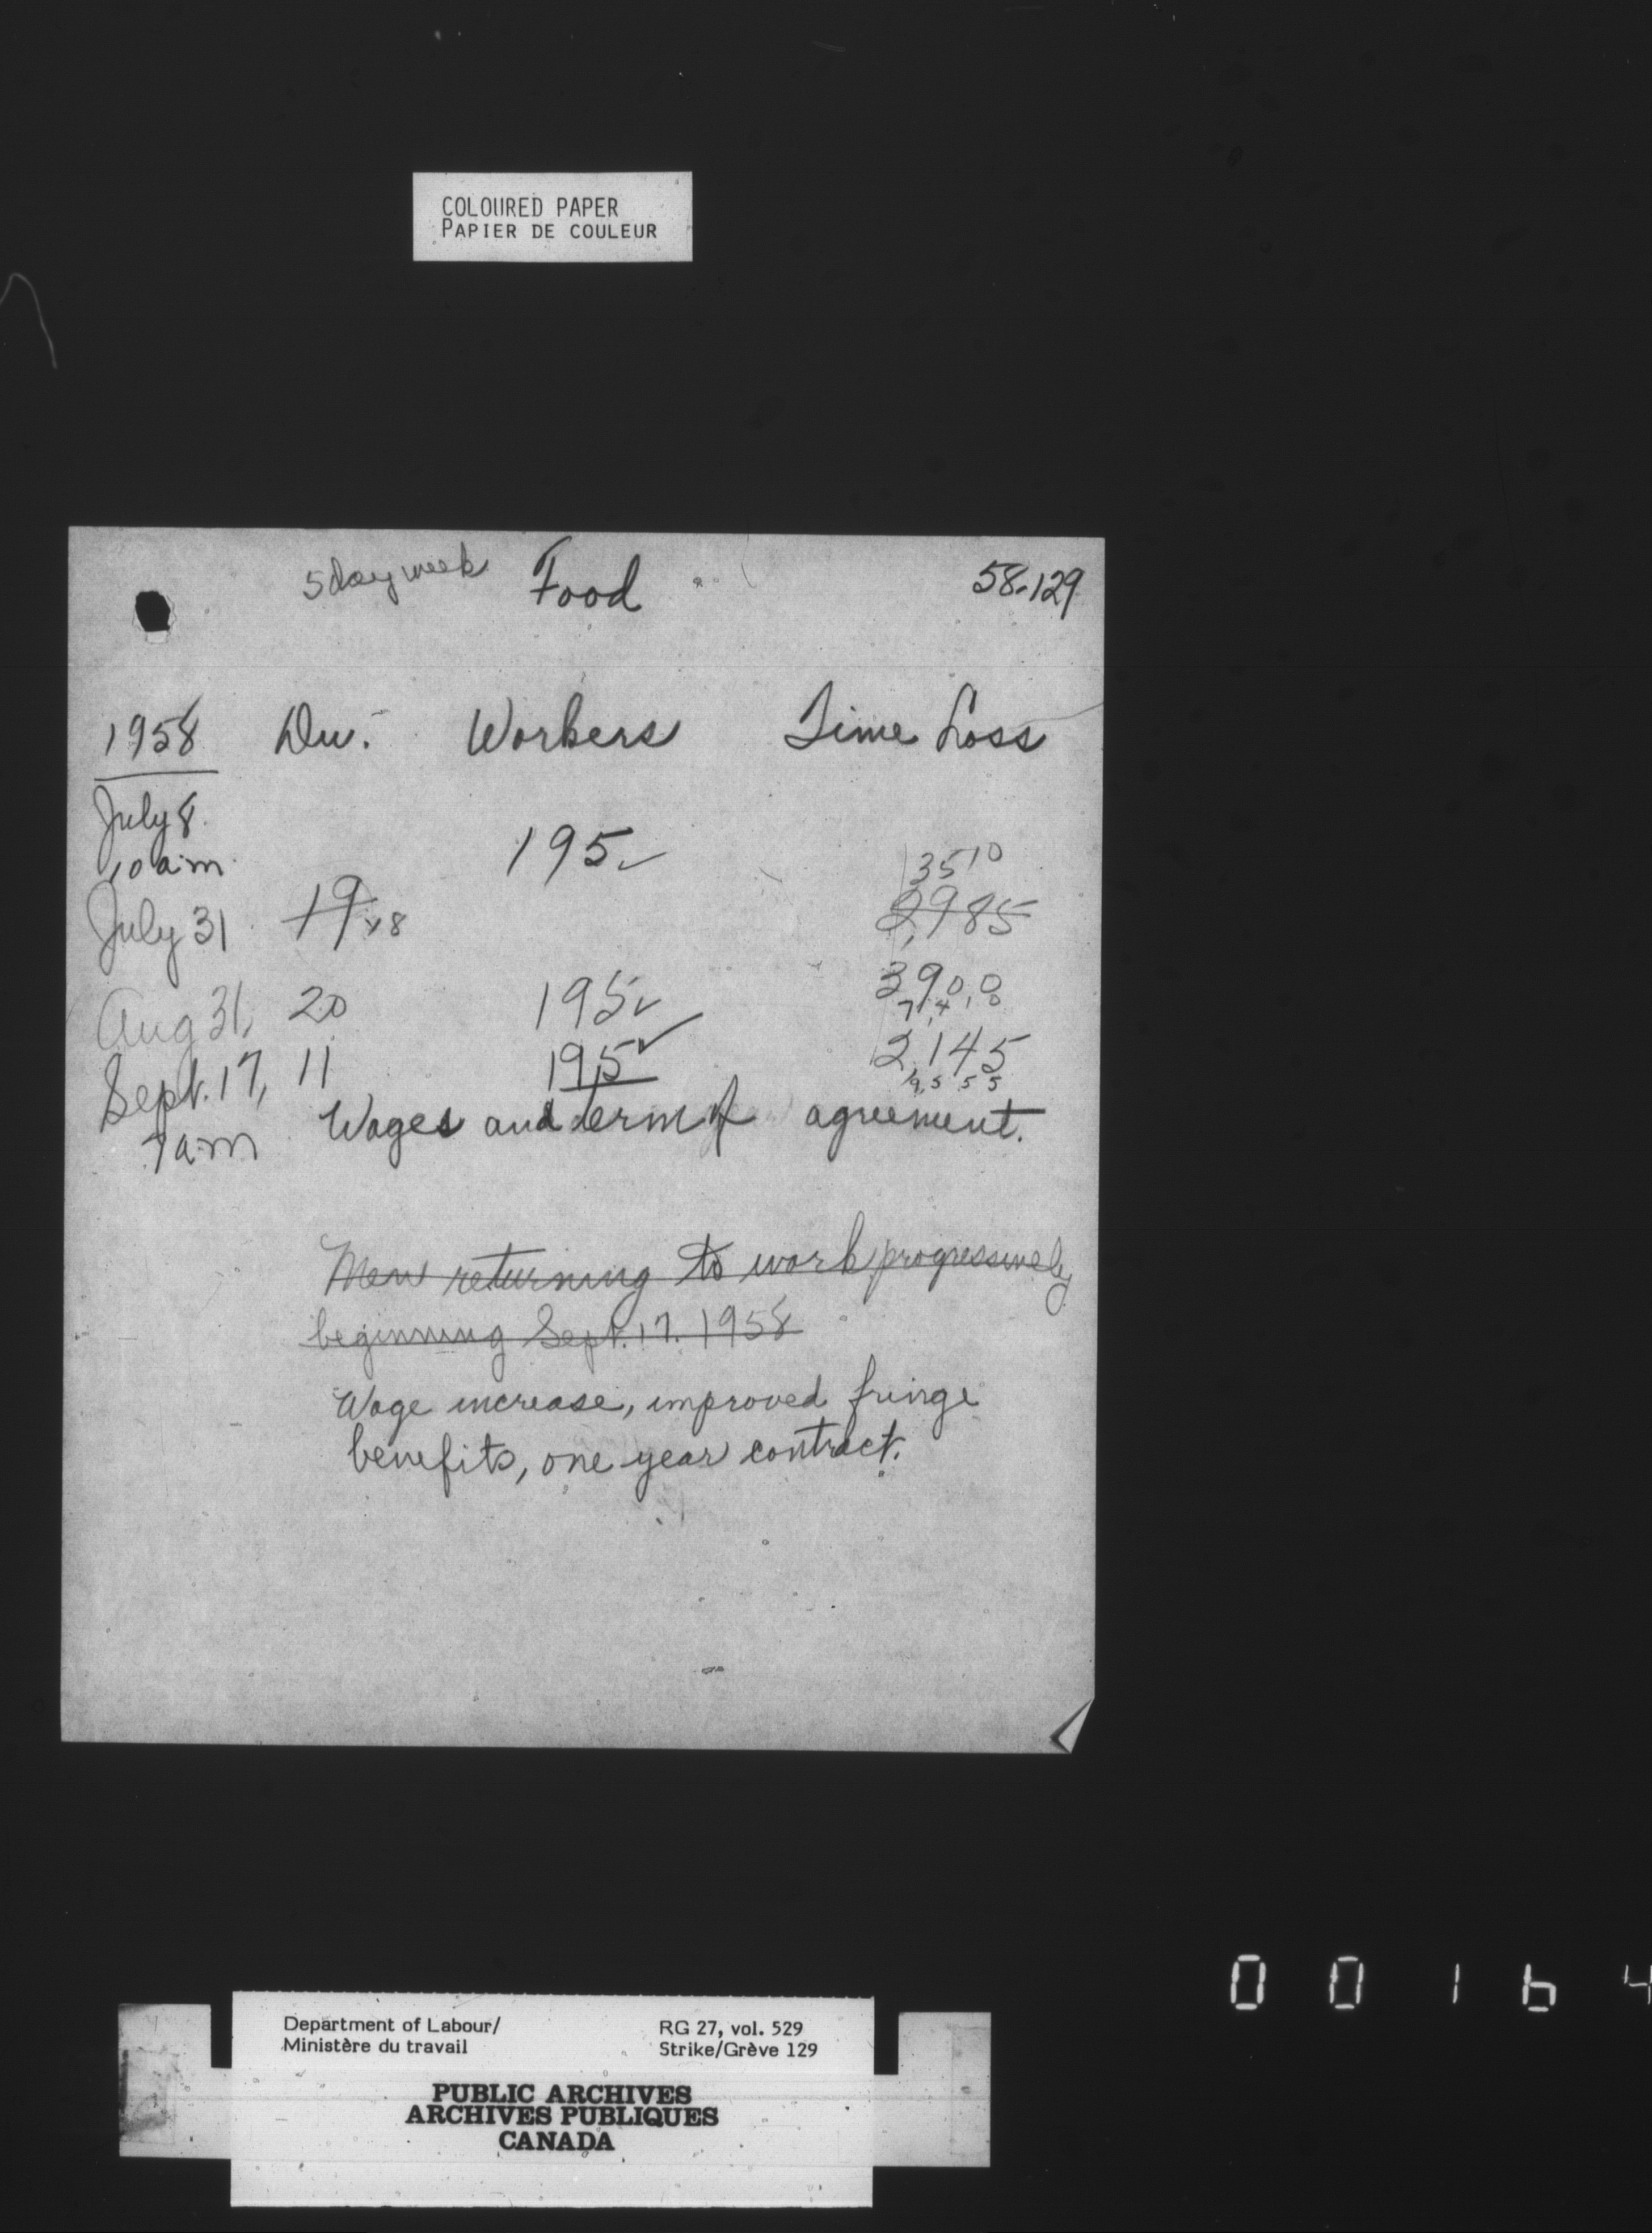 COLOURED PAPER
PAPIER DE COULEUR
5 day week Food 58-129
1958 Du. Workers Time Loss
July 8
10 a.m. 195 ✓
3510
July 31 19 x8 2,985
Aug 31, 20 195 ✓ 3900
7,4,10
Sept. 17, 11 195 ✓ 2,145
9,555
7 a.m Wages and term of agreement.
Men returning to work progressively
beginning Sept. 17. 1958
Wage increase, improved fringe
benefits, one year contract.
0 0 1 6 4
Department of Labour/ RG 27, vol. 529
Ministère du travail Strike/Grève 129
PUBLIC ARCHIVES
ARCHIVES PUBLIQUES
CANADA